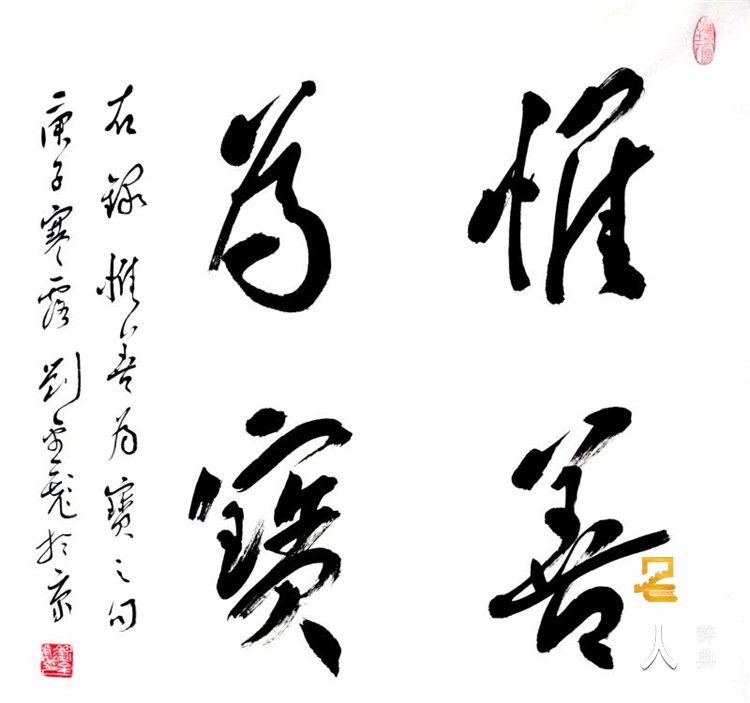 惟善
为寶
右錄惟善为寶之句
庚子寒露劉金於京
人
辭典